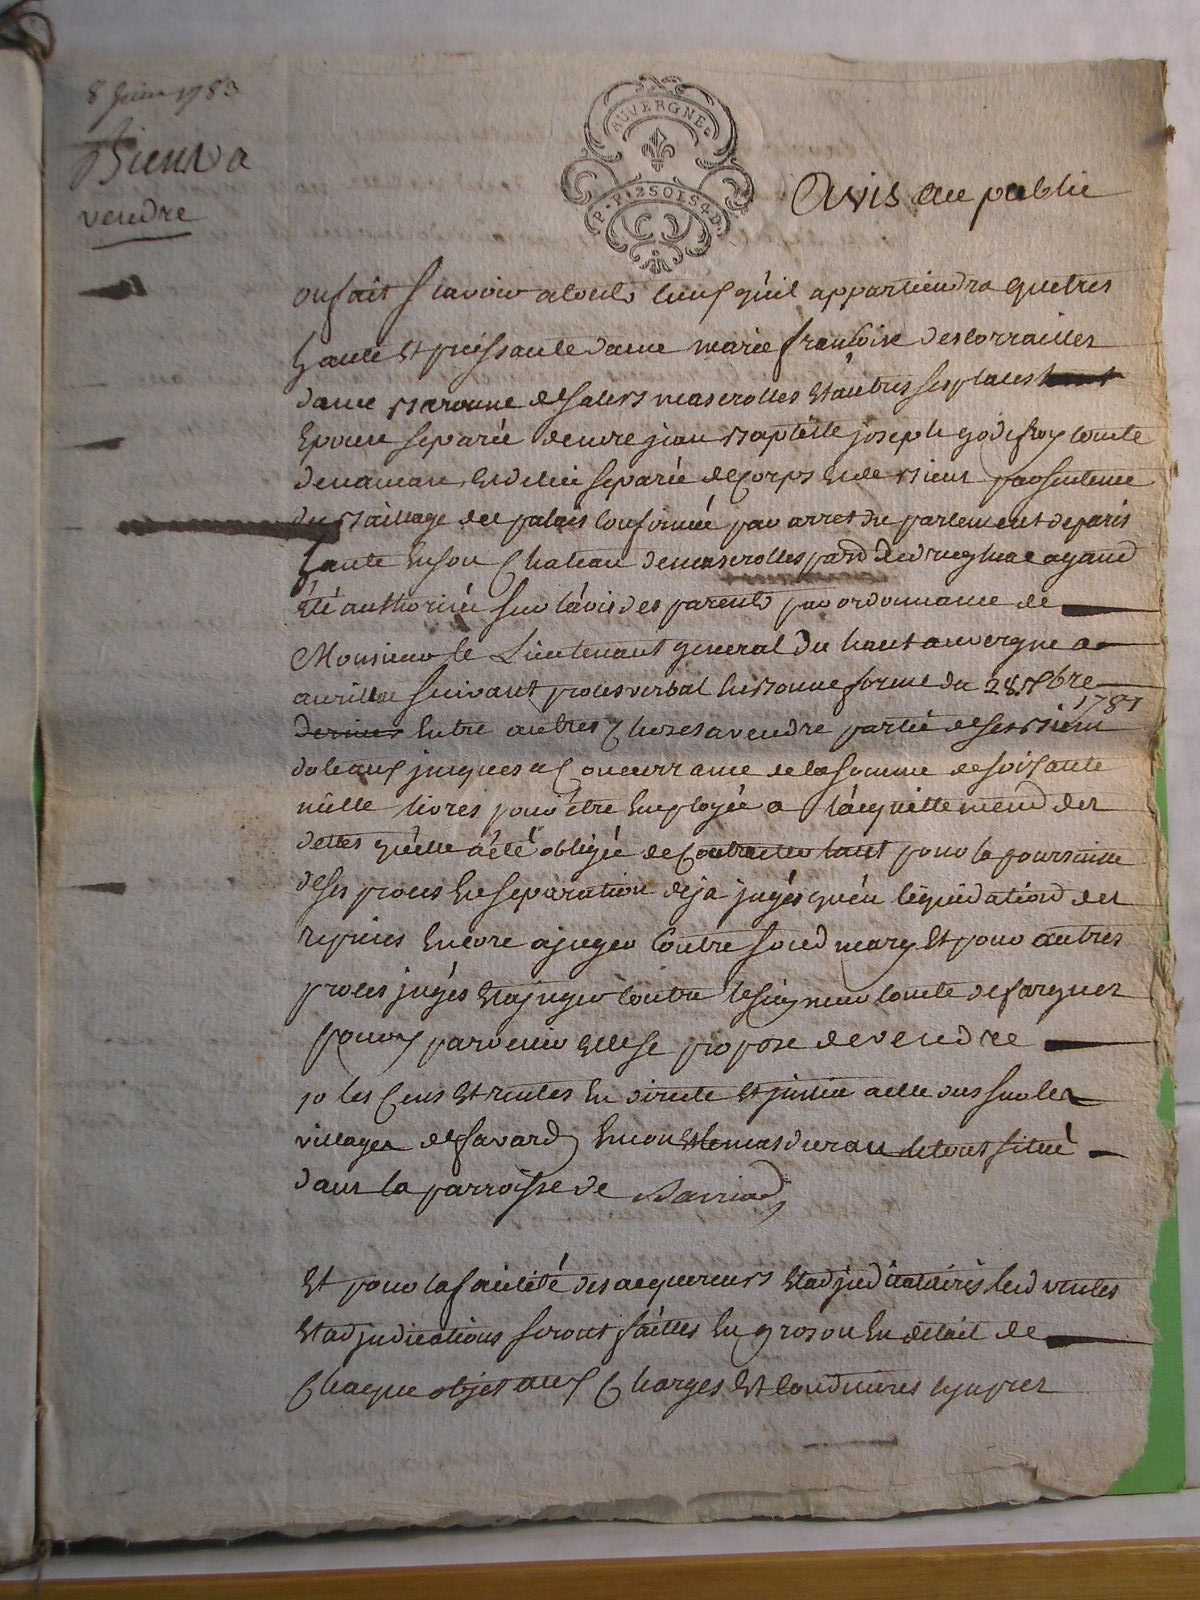 8 Juin 1783
Biens a
vendre
AUVERGNE
P. P. 2 SOLS 4 D.
Avis au public
on fait scavoir a touts ceux qu'il appartiendra que tres
haute et puissante dame marie françoise descorrailles
dame Baronne de salers mazerolles et autres ses places
Epouse separée de mre jean Baptiste joseph godefroy comte
de et d'elle separée de Corps et de Biens par sentence
du Baillage du palais confirmée par arret du parlement de paris
hante en son Chateau de mazerolles ayant
été authorisée sur l'avis des parents par ordonnance de
Monsieur le Lieutenant general du haut auvergne a
aurillac suivant proces verbal en Bonne forme du 28 7bre
1781
dernier Entre autres Choses a vendre partie de ses Biens
dotaux jusques a Concurrance de la somme de soixante
mille livres pour être Employée a l'acquittement des
dettes qu'elle a été obligée de Contracter tant pour la poursuitte
de ses proces En separation deja jugés qu'en liquidation des
reprises Encore a juger Contre son d mary Et pour autres
proces jugés Et a juger contre le seigneur comte de fargues
pour y parvenir Elle se propose de vendre
1o les Cens Et rentes En directe Et justice a elle dus sur les
villages de favard, Encon Et le mas duran le tout situé
dans la parroisse de Barriac
Et pour la facilité des acquereurs Et adjudicataires les d ventes
Et adjudications seront faittes En gros ou En detail de
Chaque objet aux Charges Et conditions cy apres